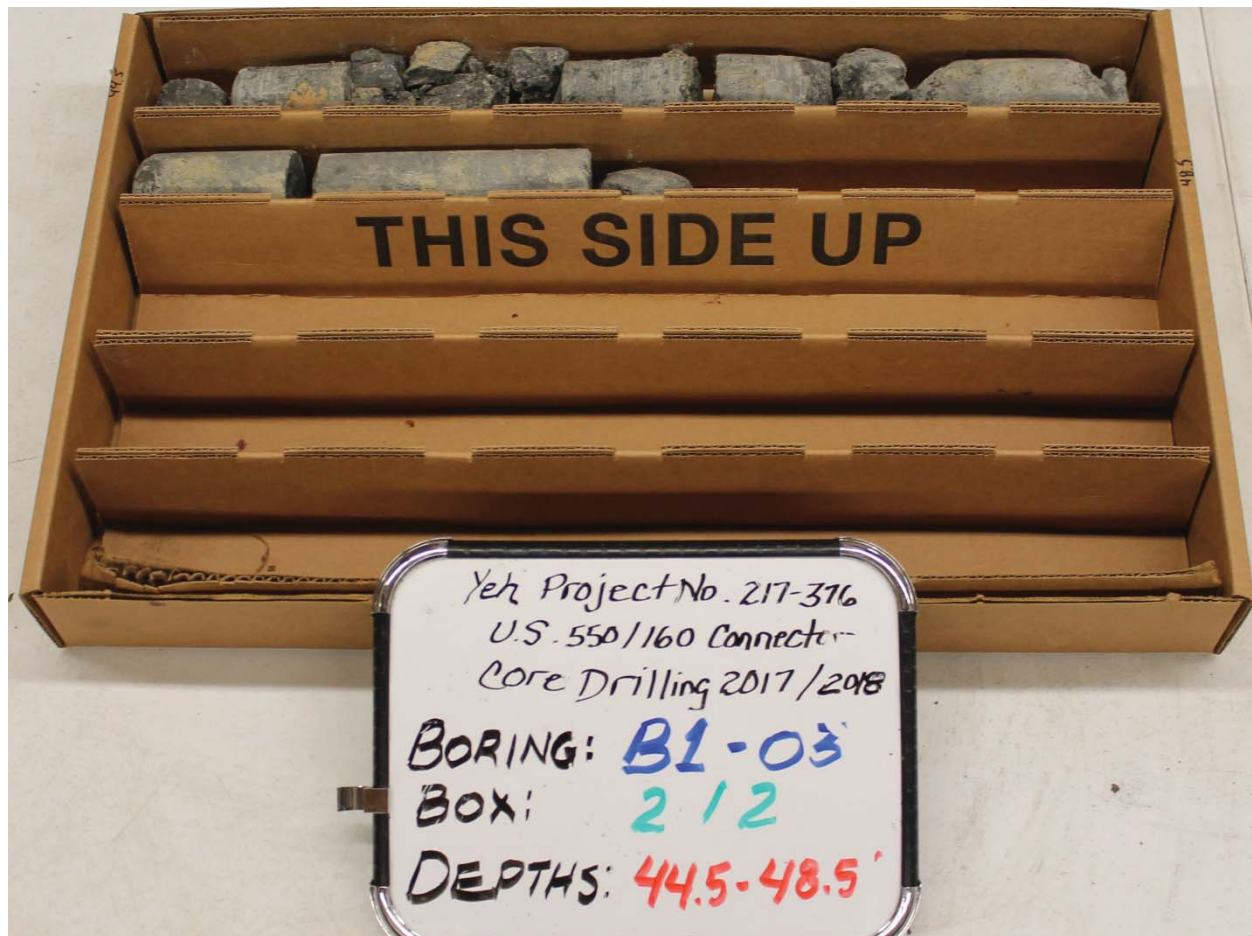 44.5
48.5
THIS SIDE UP
Yeh Project No. 217-376
U.S. 550/160 Connector
Core Drilling 2017/2018
BORING: B1-03
BOX: 2 / 2
DEPTHS: 44.5-48.5'